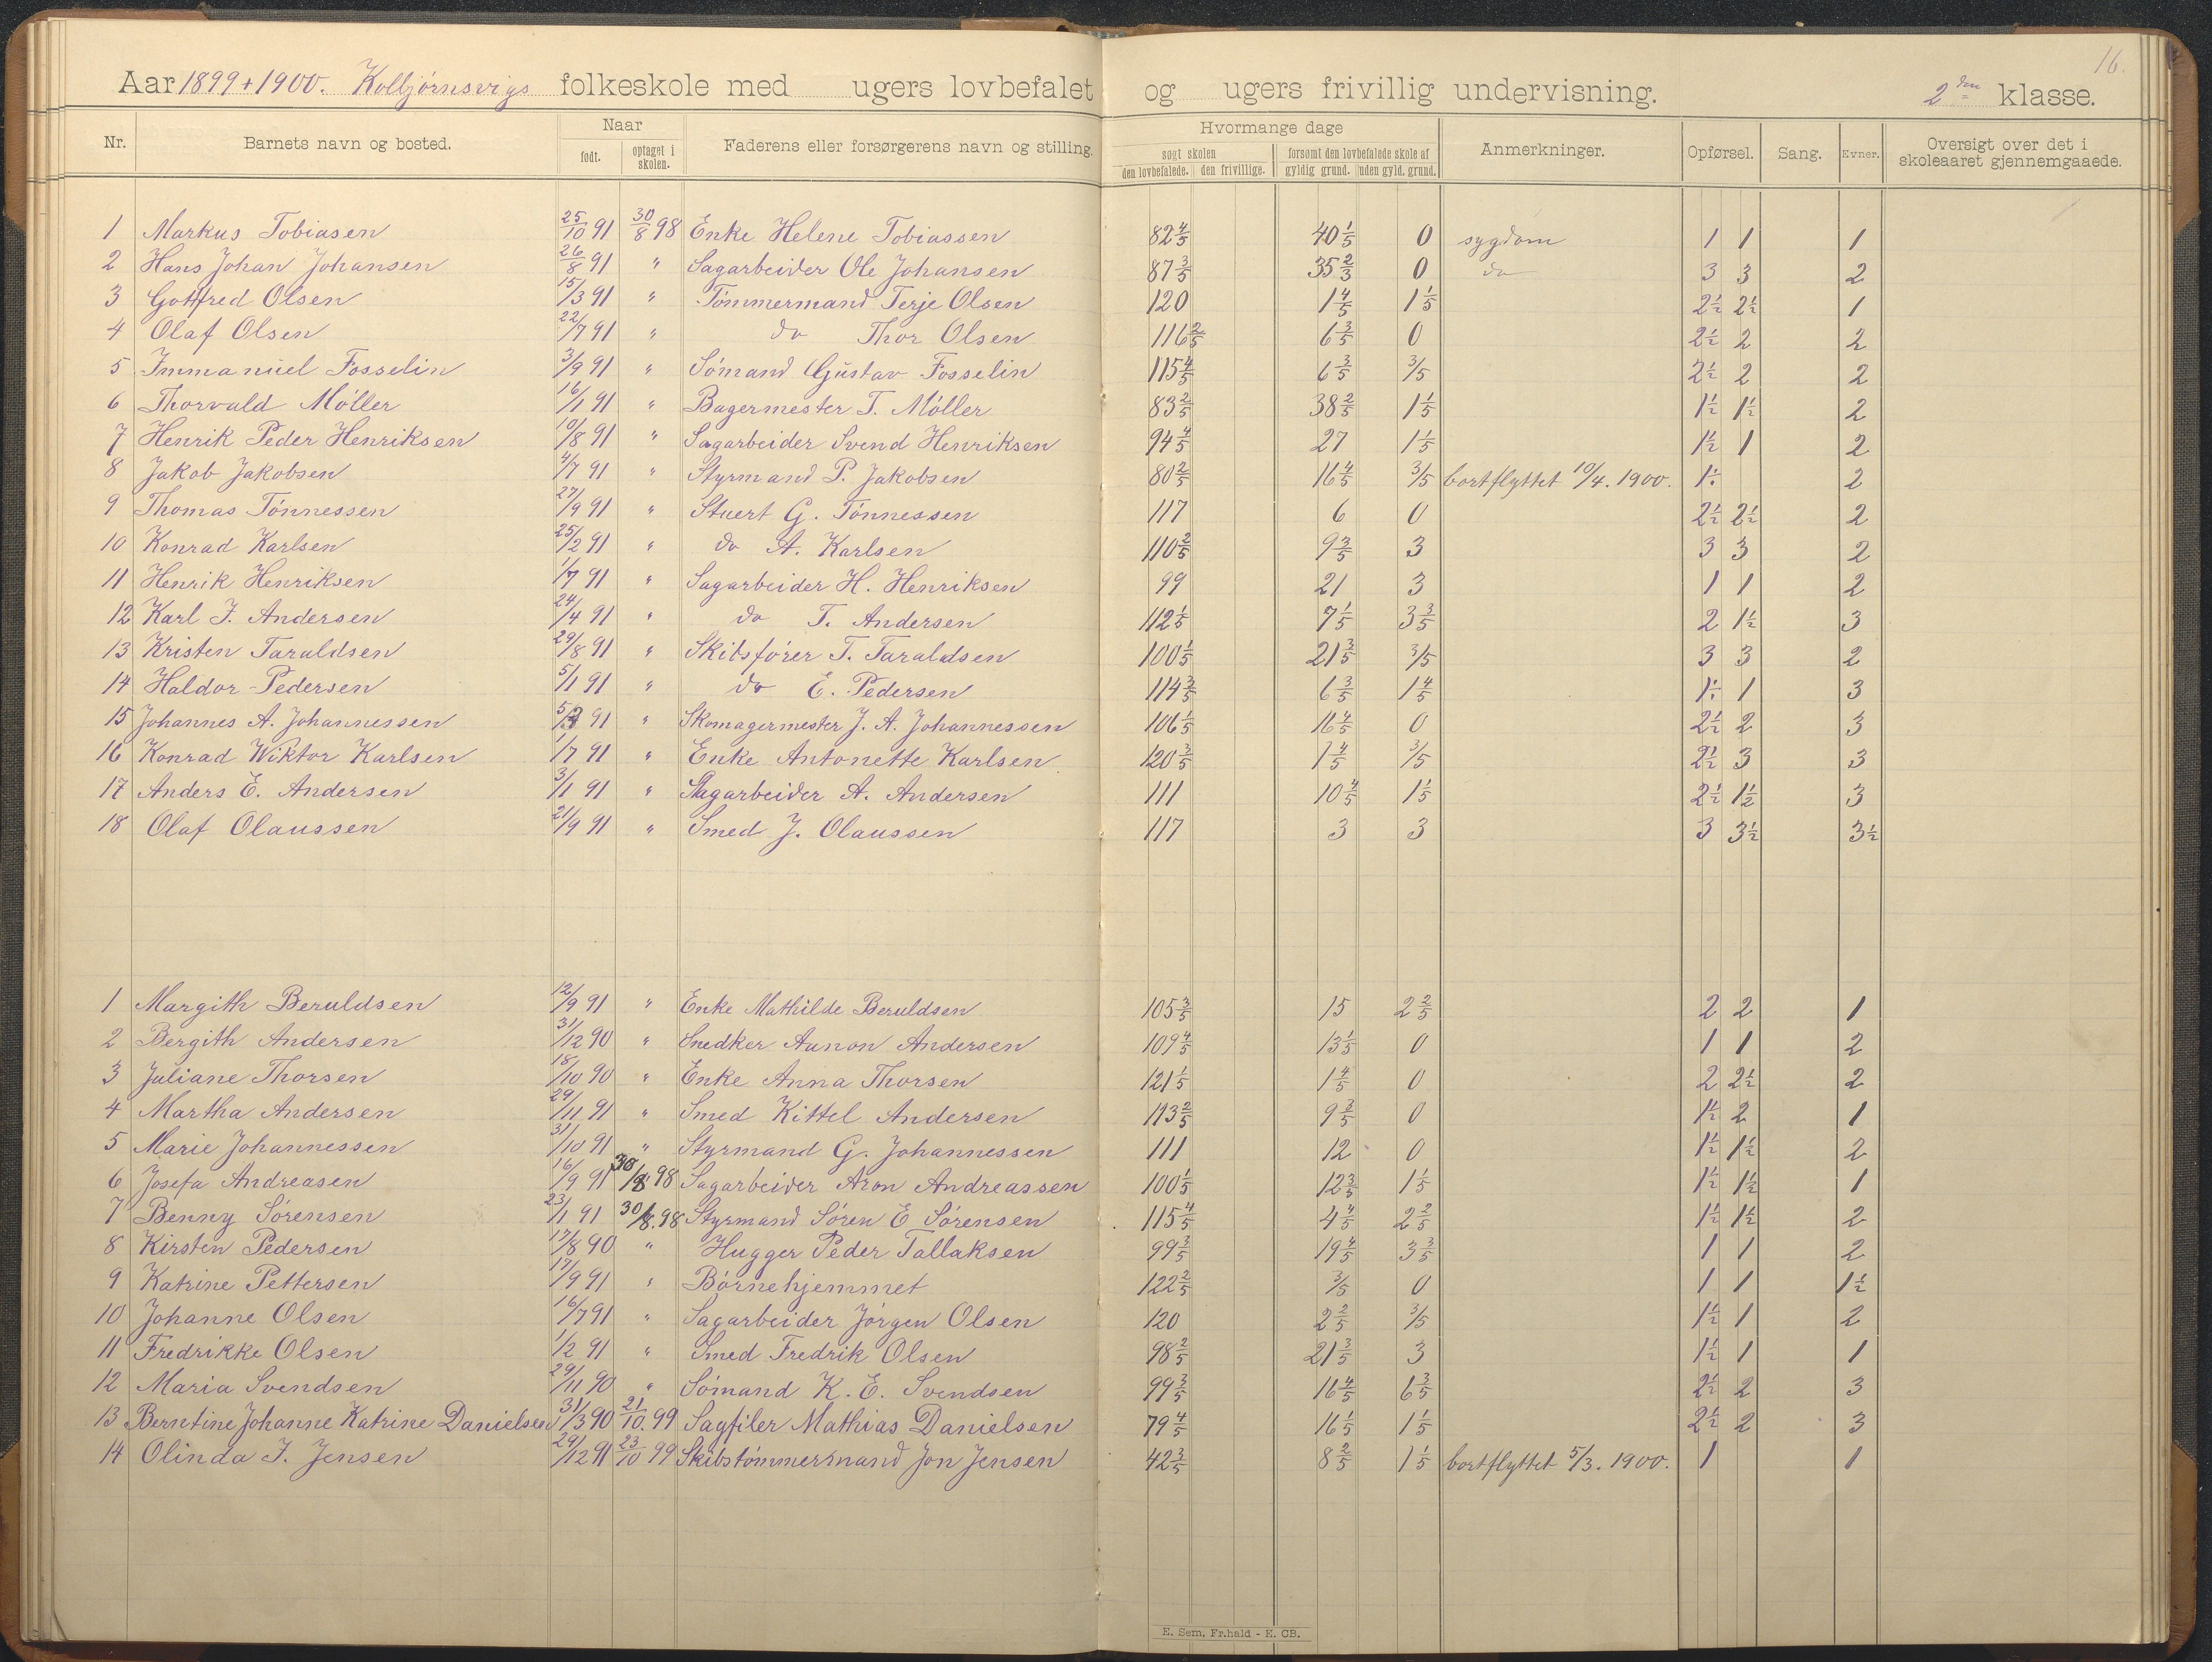 16.
Aar 1899 + 1900. Kolbjørnsvigs folkeskole med ugers lovbefalet og ugers frivillig undervisning. 2den klasse.
Nr. Barnets navn og bosted. Naar født. optaget i skolen. Faderens eller forsørgerens navn og stilling. Hvormange dage søgt skolen den lovbefalede. den frivillige. forsømt den lovbefalede skole af gyldig grund. uden gyld. grund. Anmerkninger. Opførsel. Sang. Evner. Oversigt over det i skoleaaret gjennemgaaede.
1 Markus Tobiasen 25/10 91 30/8 98 Enke Helene Tobiassen 82 4/5 40 1/5 0 sygdom 1 1 1
2 Hans Johan Johansen 26/8 91 " Sagarbeider Ole Johansen 87 3/5 35 2/3 0 do 3 3 2
3 Gotfred Olsen 15/3 91 " Tømmermand Terje Olsen 120 1 4/5 1 1/5 2 1/2 2 1/2 1
4 Olaf Olsen 22/7 91 " do Thor Olsen 116 2/5 6 3/5 0 2 1/2 2 2
5 Immanuel Fosselin 3/9 91 " Sømand Gustav Fosselin 115 4/5 6 3/5 3/5 2 1/2 2 2
6 Thorvald Møller 16/1 91 " Bagermester T. Møller 83 2/5 38 2/5 1 1/5 1 1/2 1 1/2 2
7 Henrik Peder Henriksen 10/8 91 " Sagarbeider Svend Henriksen 94 4/5 27 1 1/5 1 1/2 1 2
8 Jakob Jakobsen 4/7 91 " Styrmand P. Jakobsen 80 2/5 16 4/5 3/5 bortflyttet 10/4. 1900. 1÷ 2
9 Thomas Tønnessen 27/9 91 " Stuert G. Tønnessen 117 6 0 2 1/2 2 1/2 2
10 Konrad Karlsen 25/2 91 " do A. Karlsen 110 2/5 9 3/5 3 3 3 2
11 Henrik Henriksen 1/7 91 " Sagarbeider H. Henriksen 99 21 3 1 1 2
12 Karl J. Andersen 24/4 91 " do T. Andersen 112 1/5 7 1/5 3 3/5 2 1 1/2 3
13 Kristen Taraldsen 29/8 91 " Skibsfører T. Taraldsen 100 1/5 21 3/5 3/5 3 3 2
14 Haldor Pedersen 5/1 91 " do E. Pedersen 114 3/5 6 3/5 1 4/5 1÷ 1 3
15 Johannes A. Johannessen 5/3 91 " Skomagermester J. A. Johannessen 106 1/5 16 4/5 0 2 1/2 2 3
16 Konrad Wiktor Karlsen 1/7 91 " Enke Antonette Karlsen 120 3/5 1 4/5 3/5 2 1/2 3 3
17 Anders E. Andersen 3/1 91 " Sagarbeider A. Andersen 111 10 4/5 1 1/5 2 1/2 1 1/2 3
18 Olaf Olaussen 21/9 91 " Smed J. Olaussen 117 3 3 3 3 1/2 3 1/2
1 Margith Beruldsen 12/9 91 " Enke Mathilde Beruldsen 105 3/5 15 2 2/5 2 2 1
2 Bergith Andersen 31/12 90 " Snedker Aanon Andersen 109 4/5 13 1/5 0 1 1 2
3 Juliane Thorsen 18/10 90 " Enke Anna Thorsen 121 1/5 1 4/5 0 2 2 1/2 2
4 Martha Andersen 29/11 91 " Smed Kittel Andersen 113 2/5 9 3/5 0 1 1/2 2 1
5 Marie Johannessen 31/10 91 " Styrmand G. Johannessen 111 12 0 1 1/2 1 1/2 2
6 Josefa Andreasen 16/9 91 30/8 98 Sagarbeider Aron Andreassen 100 1/5 12 3/5 1 1/5 1 1/2 1 1/2 1
7 Benny Sørensen 23/1 91 30/8.98 Styrmand Søren E Sørensen 115 4/5 4 4/5 2 2/5 1 1/2 1 1/2 2
8 Kirsten Pedersen 17/8 90 " Hugger Peder Tallaksen 99 3/5 19 4/5 3 3/5 1 1 2
9 Katrine Pettersen 17/9 91 " Børnehjemmet 122 2/5 3/5 0 1 1 1 1/2
10 Johanne Olsen 16/7 91 " Sagarbeider Jørgen Olsen 120 2 2/5 3/5 1 1/2 1 2
11 Fredrikke Olsen 1/2 91 " Smed Fredrik Olsen 98 2/5 21 3/5 3 1 1/2 1 1
12 Maria Svendsen 29/11 90 " Sømand K. E. Svendsen 99 3/5 16 4/5 6 3/5 2 1/2 2 3
13 Berntine Johanne Katrine Danielsen 31/3 90 21/10. 99 Sagfiler Mathias Danielsen 79 4/5 16 1/5 1 1/5 2 1/2 2 3
14 Olinda J. Jensen 29/12 91 23/10 99 Skibstømmermand Jon Jensen 42 3/5 8 2/5 1 1/5 bortflyttet 5/3. 1900. 1 1
E. Sem, Fr.hald - E. CB.